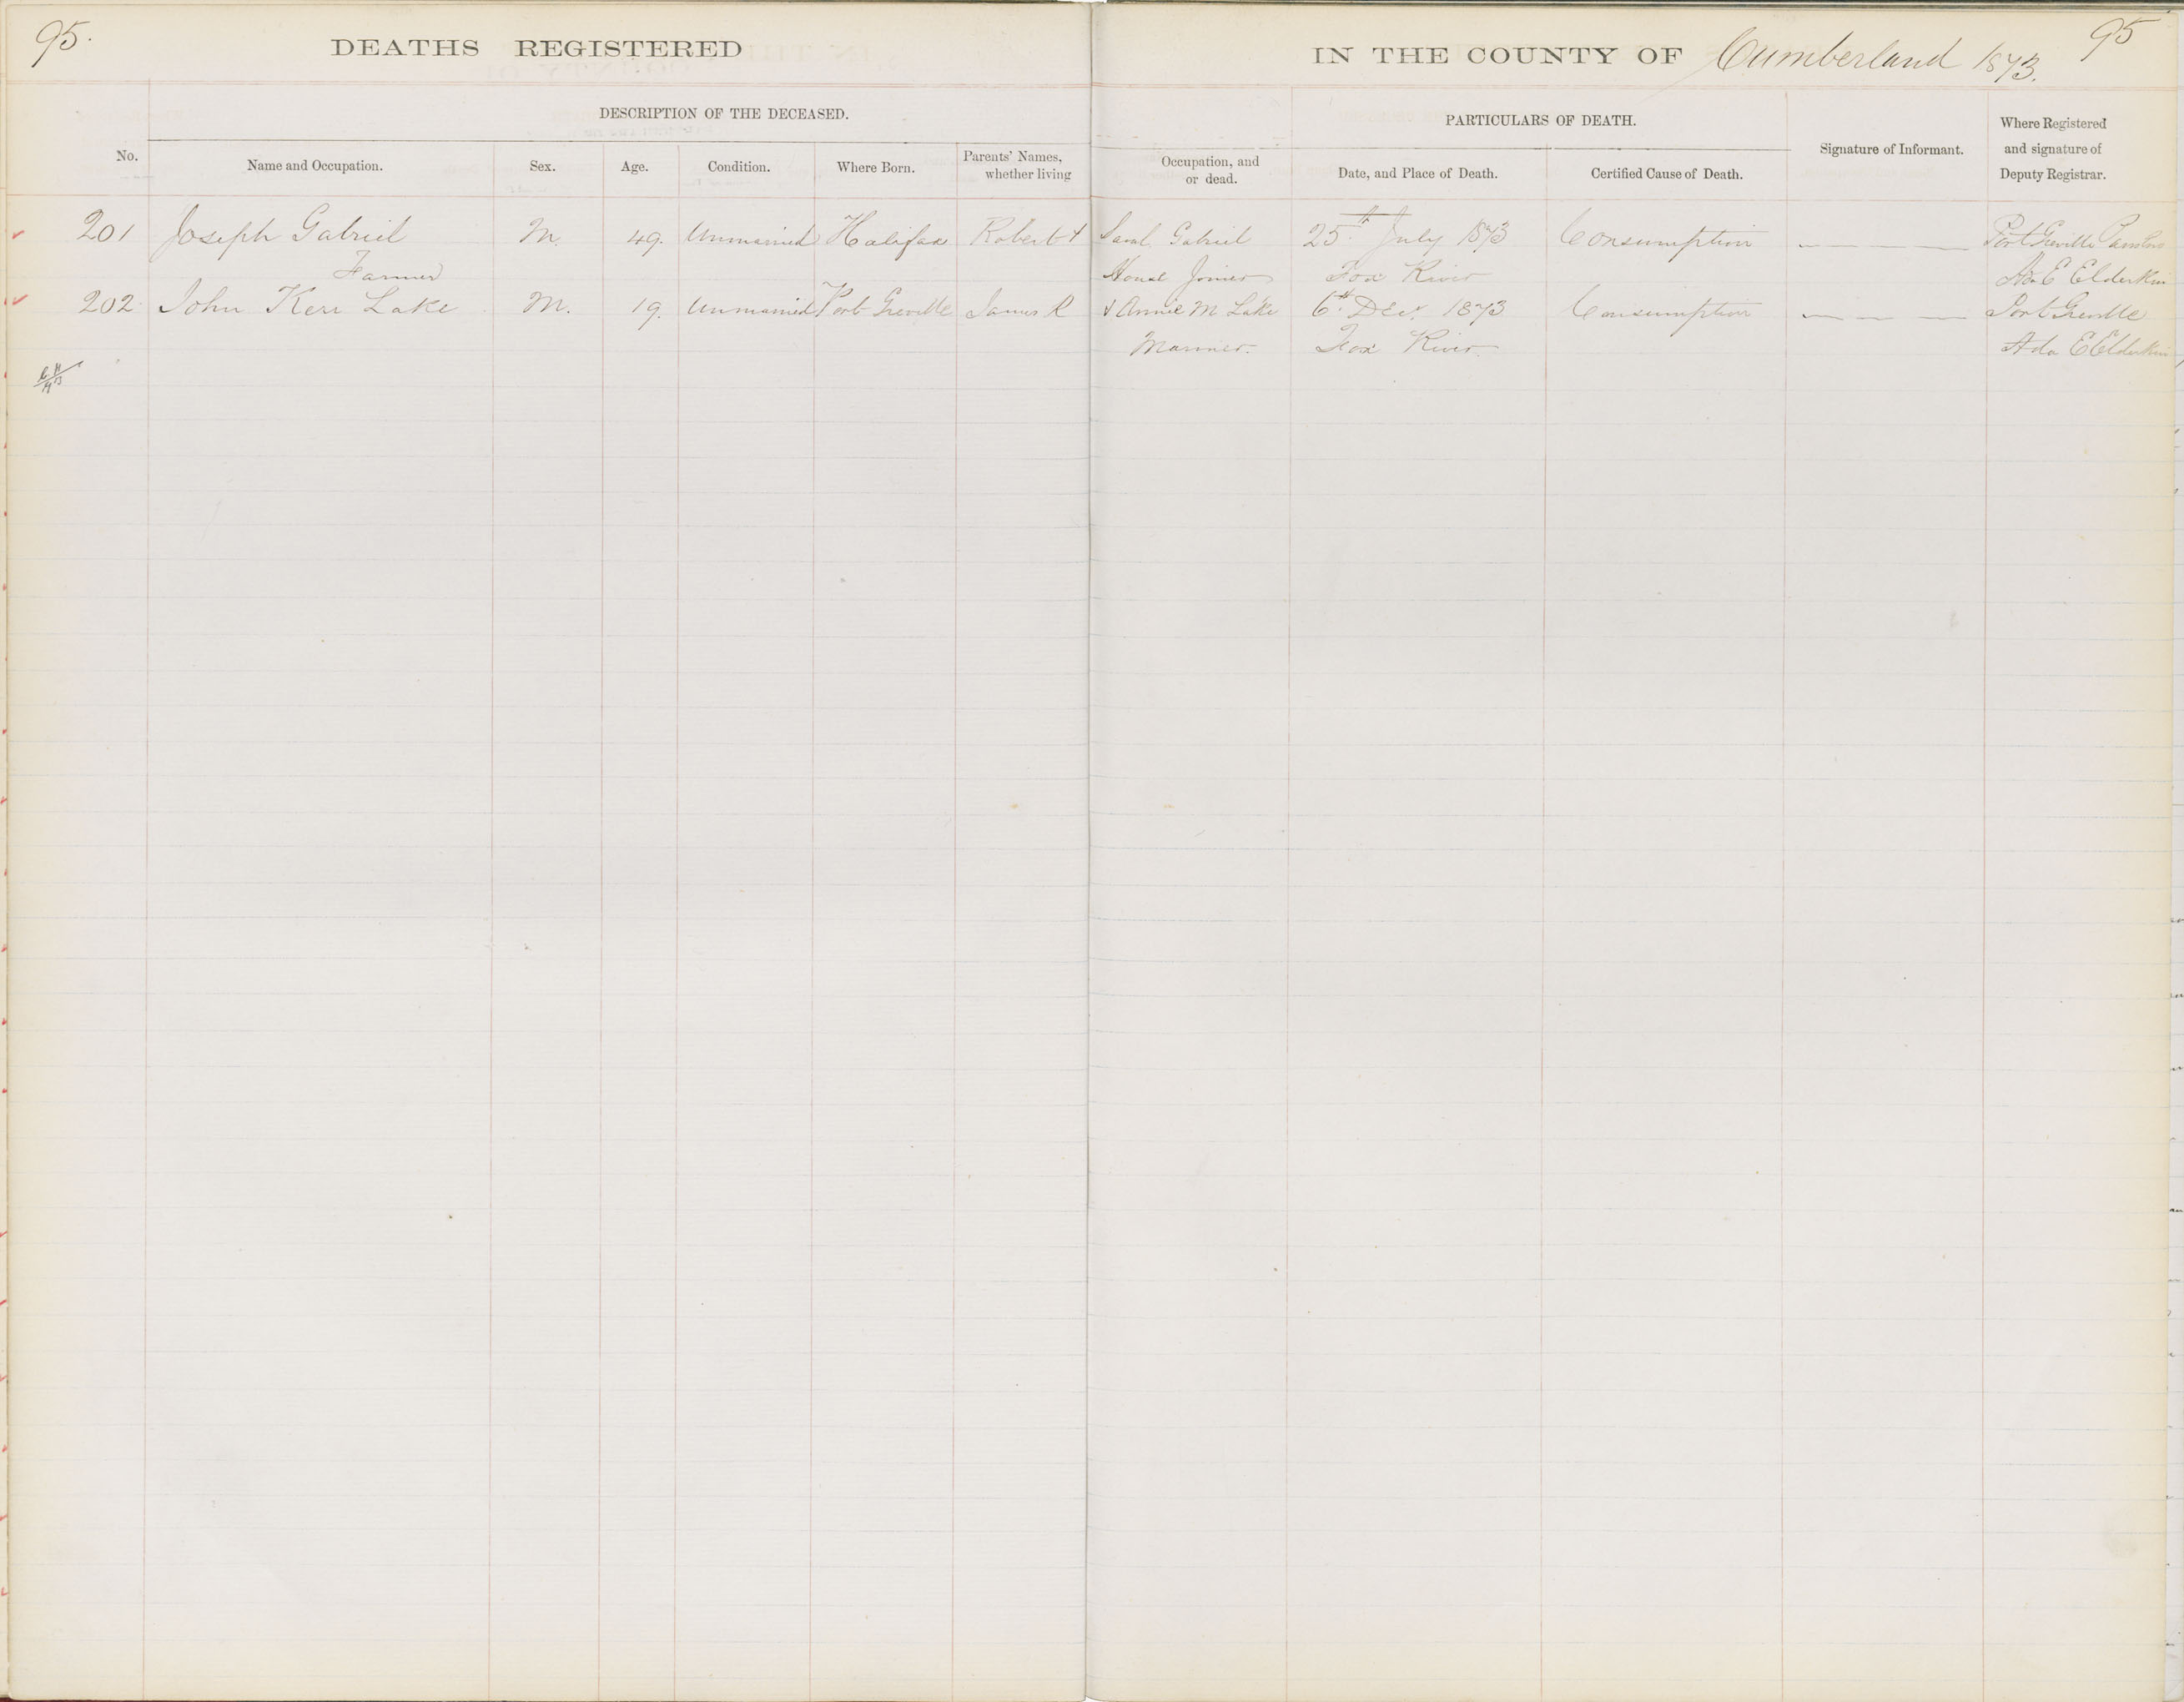 95.
DEATHS REGISTERED
IN THE COUNTY OF Cumberland 1873.
95
DESCRIPTION OF THE DECEASED.
PARTICULARS OF DEATH.
No.
Name and Occupation.
Sex.
Age.
Condition.
Where Born.
Parents' Names,
whether living
Occupation, and
or dead.
Date, and Place of Death.
Certified Cause of Death.
Signature of Informant.
Where Registered
and signature of
Deputy Registrar.
201 Joseph Gabriel M. 49. Unmarried Halifax Robert & Gabriel 25th July 1873 Consumption — — — — Port Greville
Farmer House Joiner Fox River Ada E Elderkin
202 John Kerr Lake M. 19. Unmarried Port Greville James R & Annie M Lake 6th Decr 1873 Consumption — — — — Port Greville
Mariner. Fox River. Ada E Elderkin